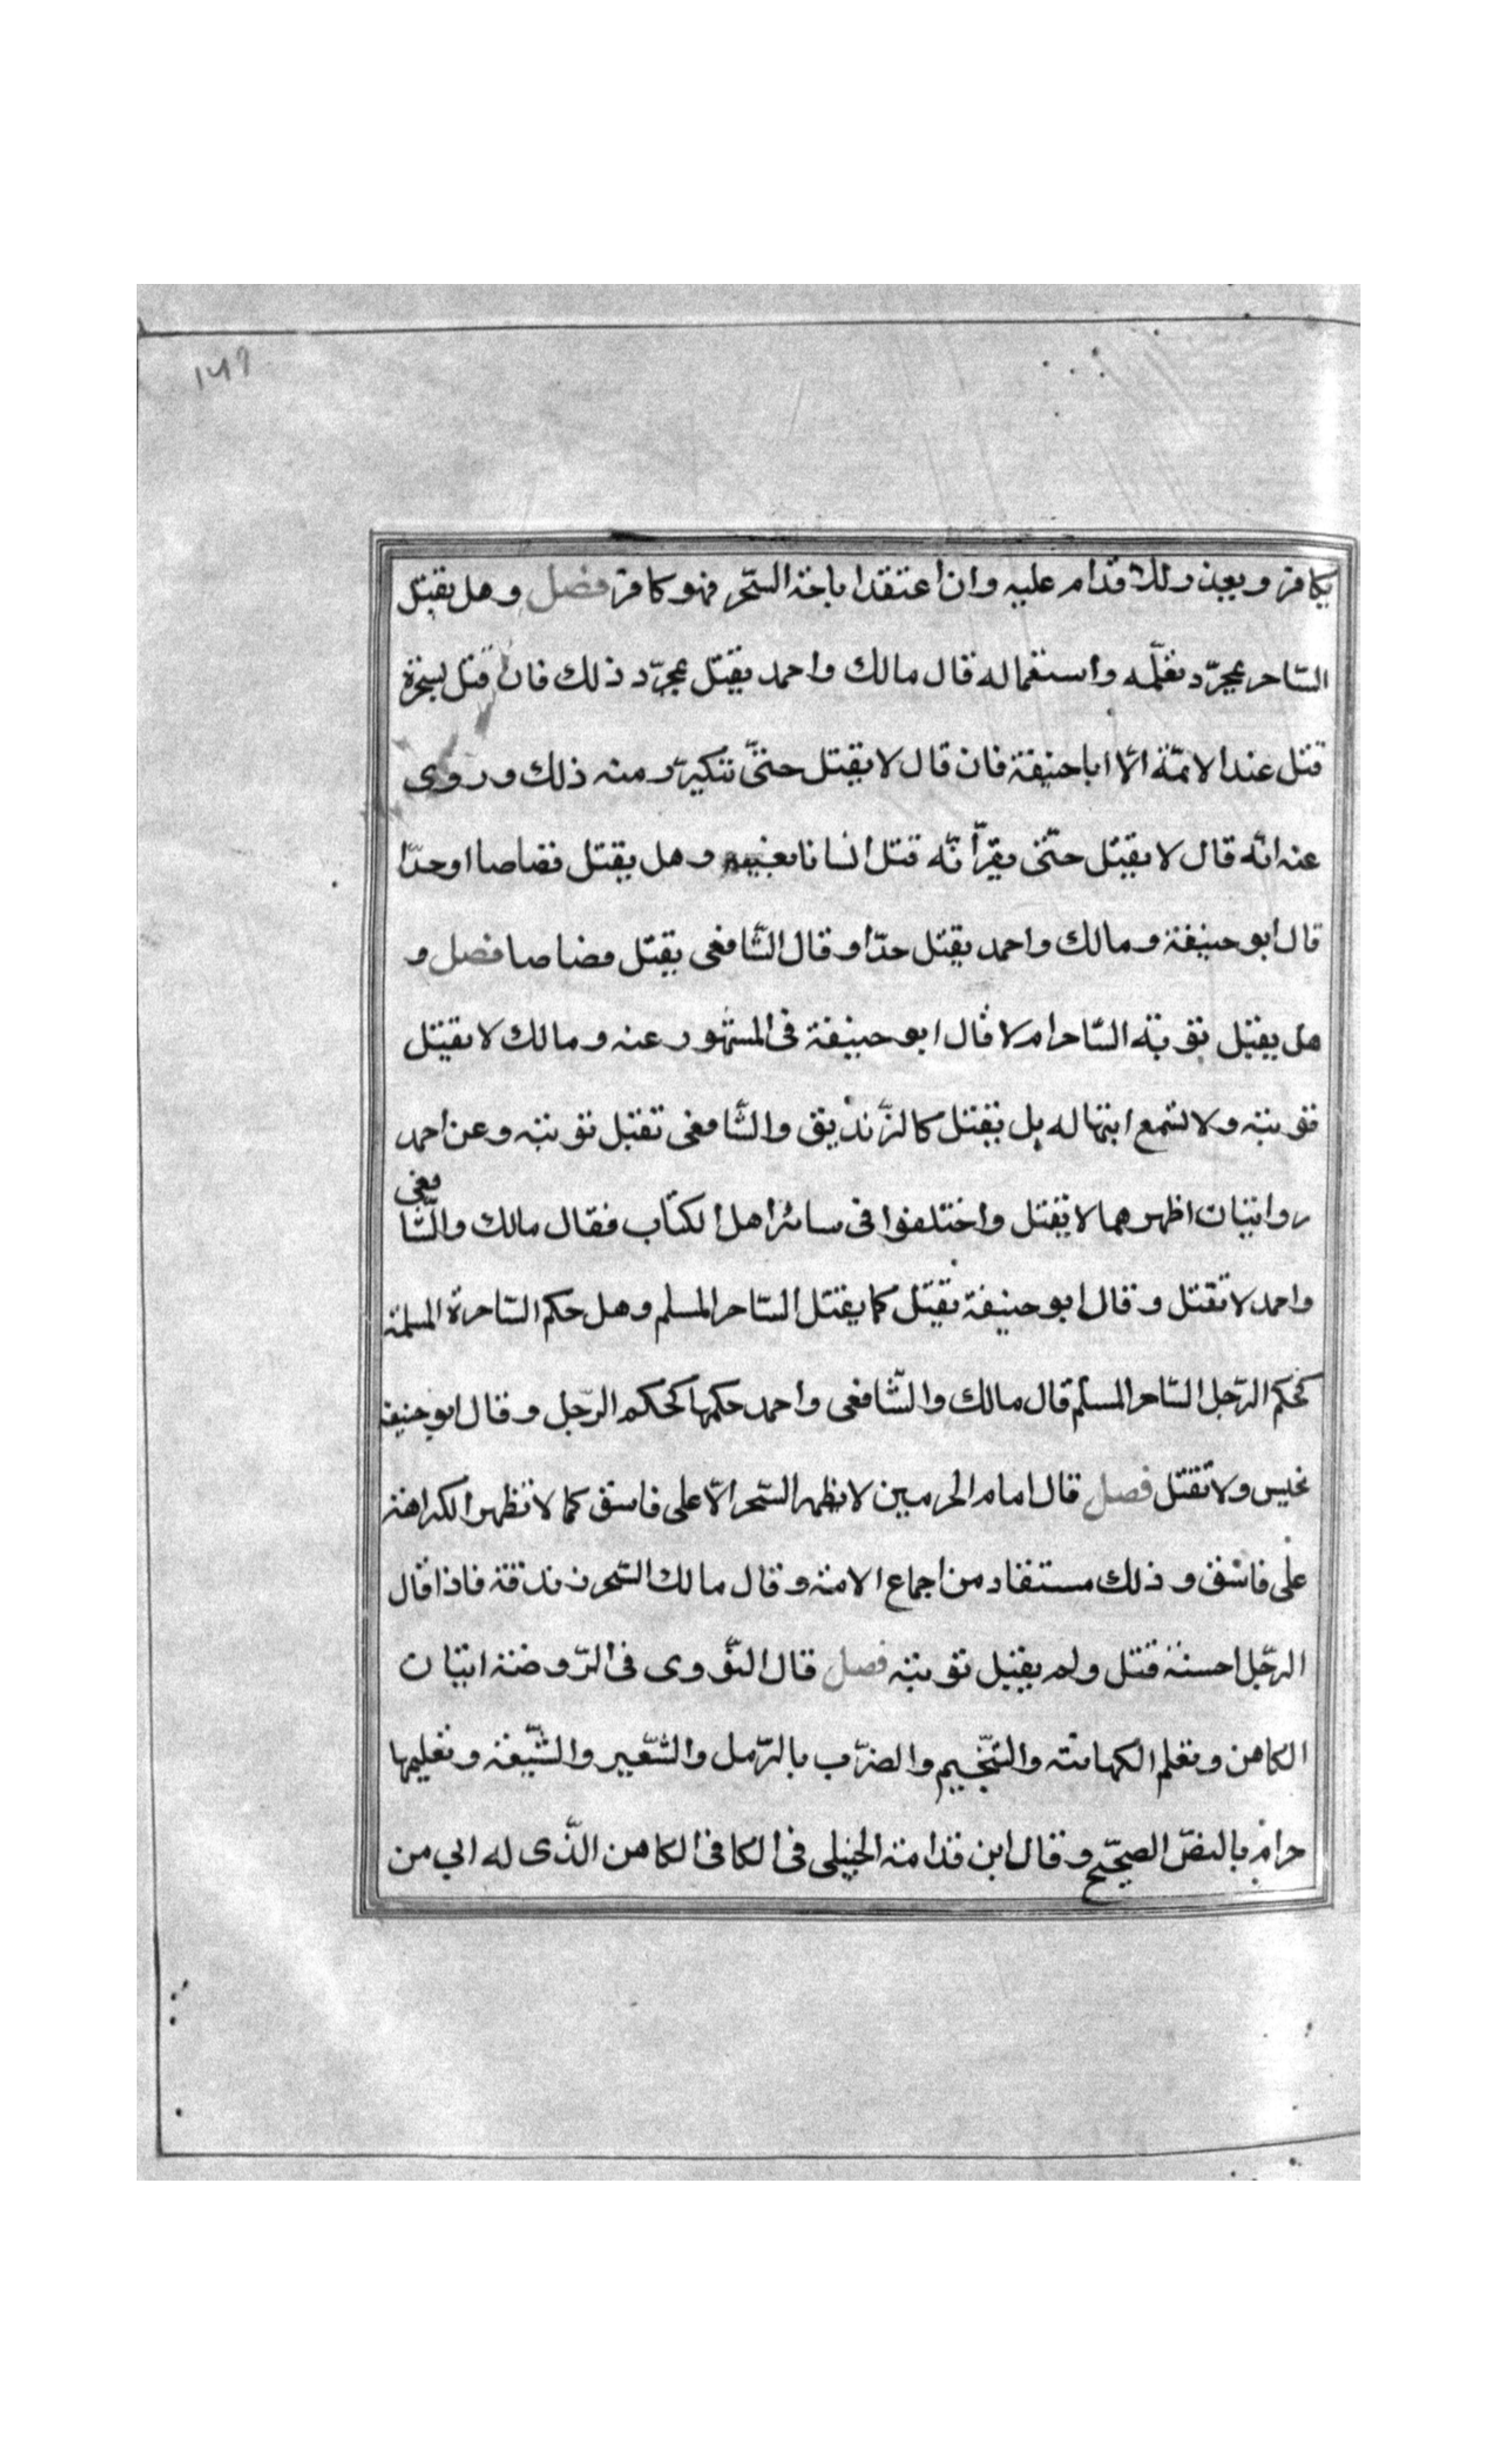 ١٤٩
بكافر ويعذر للاقدام عليه وان اعتقد اباحة السّحر فهو كافر فصل وهل يقتل
السّاحر بمجرّد تعلّمه واستعماله قال مالك واحمد يقتل بمجرّد ذلك فان قتل بسحره
قتل عند الائمّة الّا ابا حنيفة فان قال لا يقتل حتّى تتكرّر منه ذلك وروى
عنه انّه قال لا يقتل حتّى يقرّ انّه قتل انسانا بعينه وهل يقتل قصاصا او حدّا
قال ابو حنيفة ومالك واحمد يقتل حدّا وقال الشّافعى يقتل قصاصا فصل و
هل يقبل توبة السّاحر ام لا قال ابو حنيفة فى المشهور عنه ومالك لا يقبل
توبته ولا تسمع ابتهاله بل يقتل كالزّنديق والشّافعى تقبل توبته وعن احمد
روايتان اظهرهما لا يقبل واختلفوا فى سائر اهل الكتاب فقال مالك والشّافعى
واحمد لا تقتل وقال ابو حنيفة يقتل كما يقتل السّاحر المسلم وهل حكم السّاحرة المسلمة
كحكم الرّجل السّاحر المسلم قال مالك والشّافعى واحمد حكمها كحكم الرّجل وقال ابو حنيفة
تحبس ولا تقتل فصل قال امام الحرمين لا يظهر السّحر الّا على فاسق كما لا تظهر الكراهة
على فاسق وذلك مستفاد من اجماع الامة وقال مالك السّحر زندقة فاذا قال
الرّجل احسنه قتل ولم يقبل توبته فصل قال النّووى فى الرّوضة اتيان
الكاهن وتعلم الكهانة والتّنجيم والضرب بالرّمل والشّعير والشّيعة وتعليمها
حرام بالنصّ الصحيح وقال ابن قدامة الحنبلى فى الكافى الكاهن الّذى له ابي من